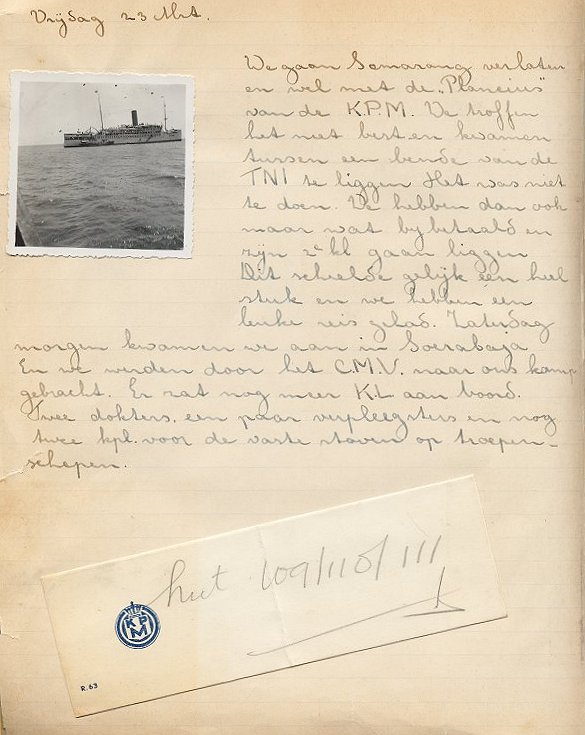 Vrijdag 23 Mrt.
We gaan Semarang verlaten
en wel met de „Plancius"
van de K.P.M. We troffen
het niet best en kwamen
tussen een bende van de
TNI te liggen Het was niet
te doen. We hebben dan ook
maar wat bijbetaald en
zijn 2e kl gaan liggen
Dit scheelde gelijk een heel
stuk en we hebben een
leuke reis gehad. Zaterdag
morgen kwamen we aan in Soerabaja
En we werden door het C.M.V. naar ons kamp
gebracht. Er zat nog meer K.L. aan boord.
Twee dokters, een paar verpleegsters en nog
twee kpl. voor de vaste staven op troepen-
schepen.
hut 109/110/111
KPM
R.63